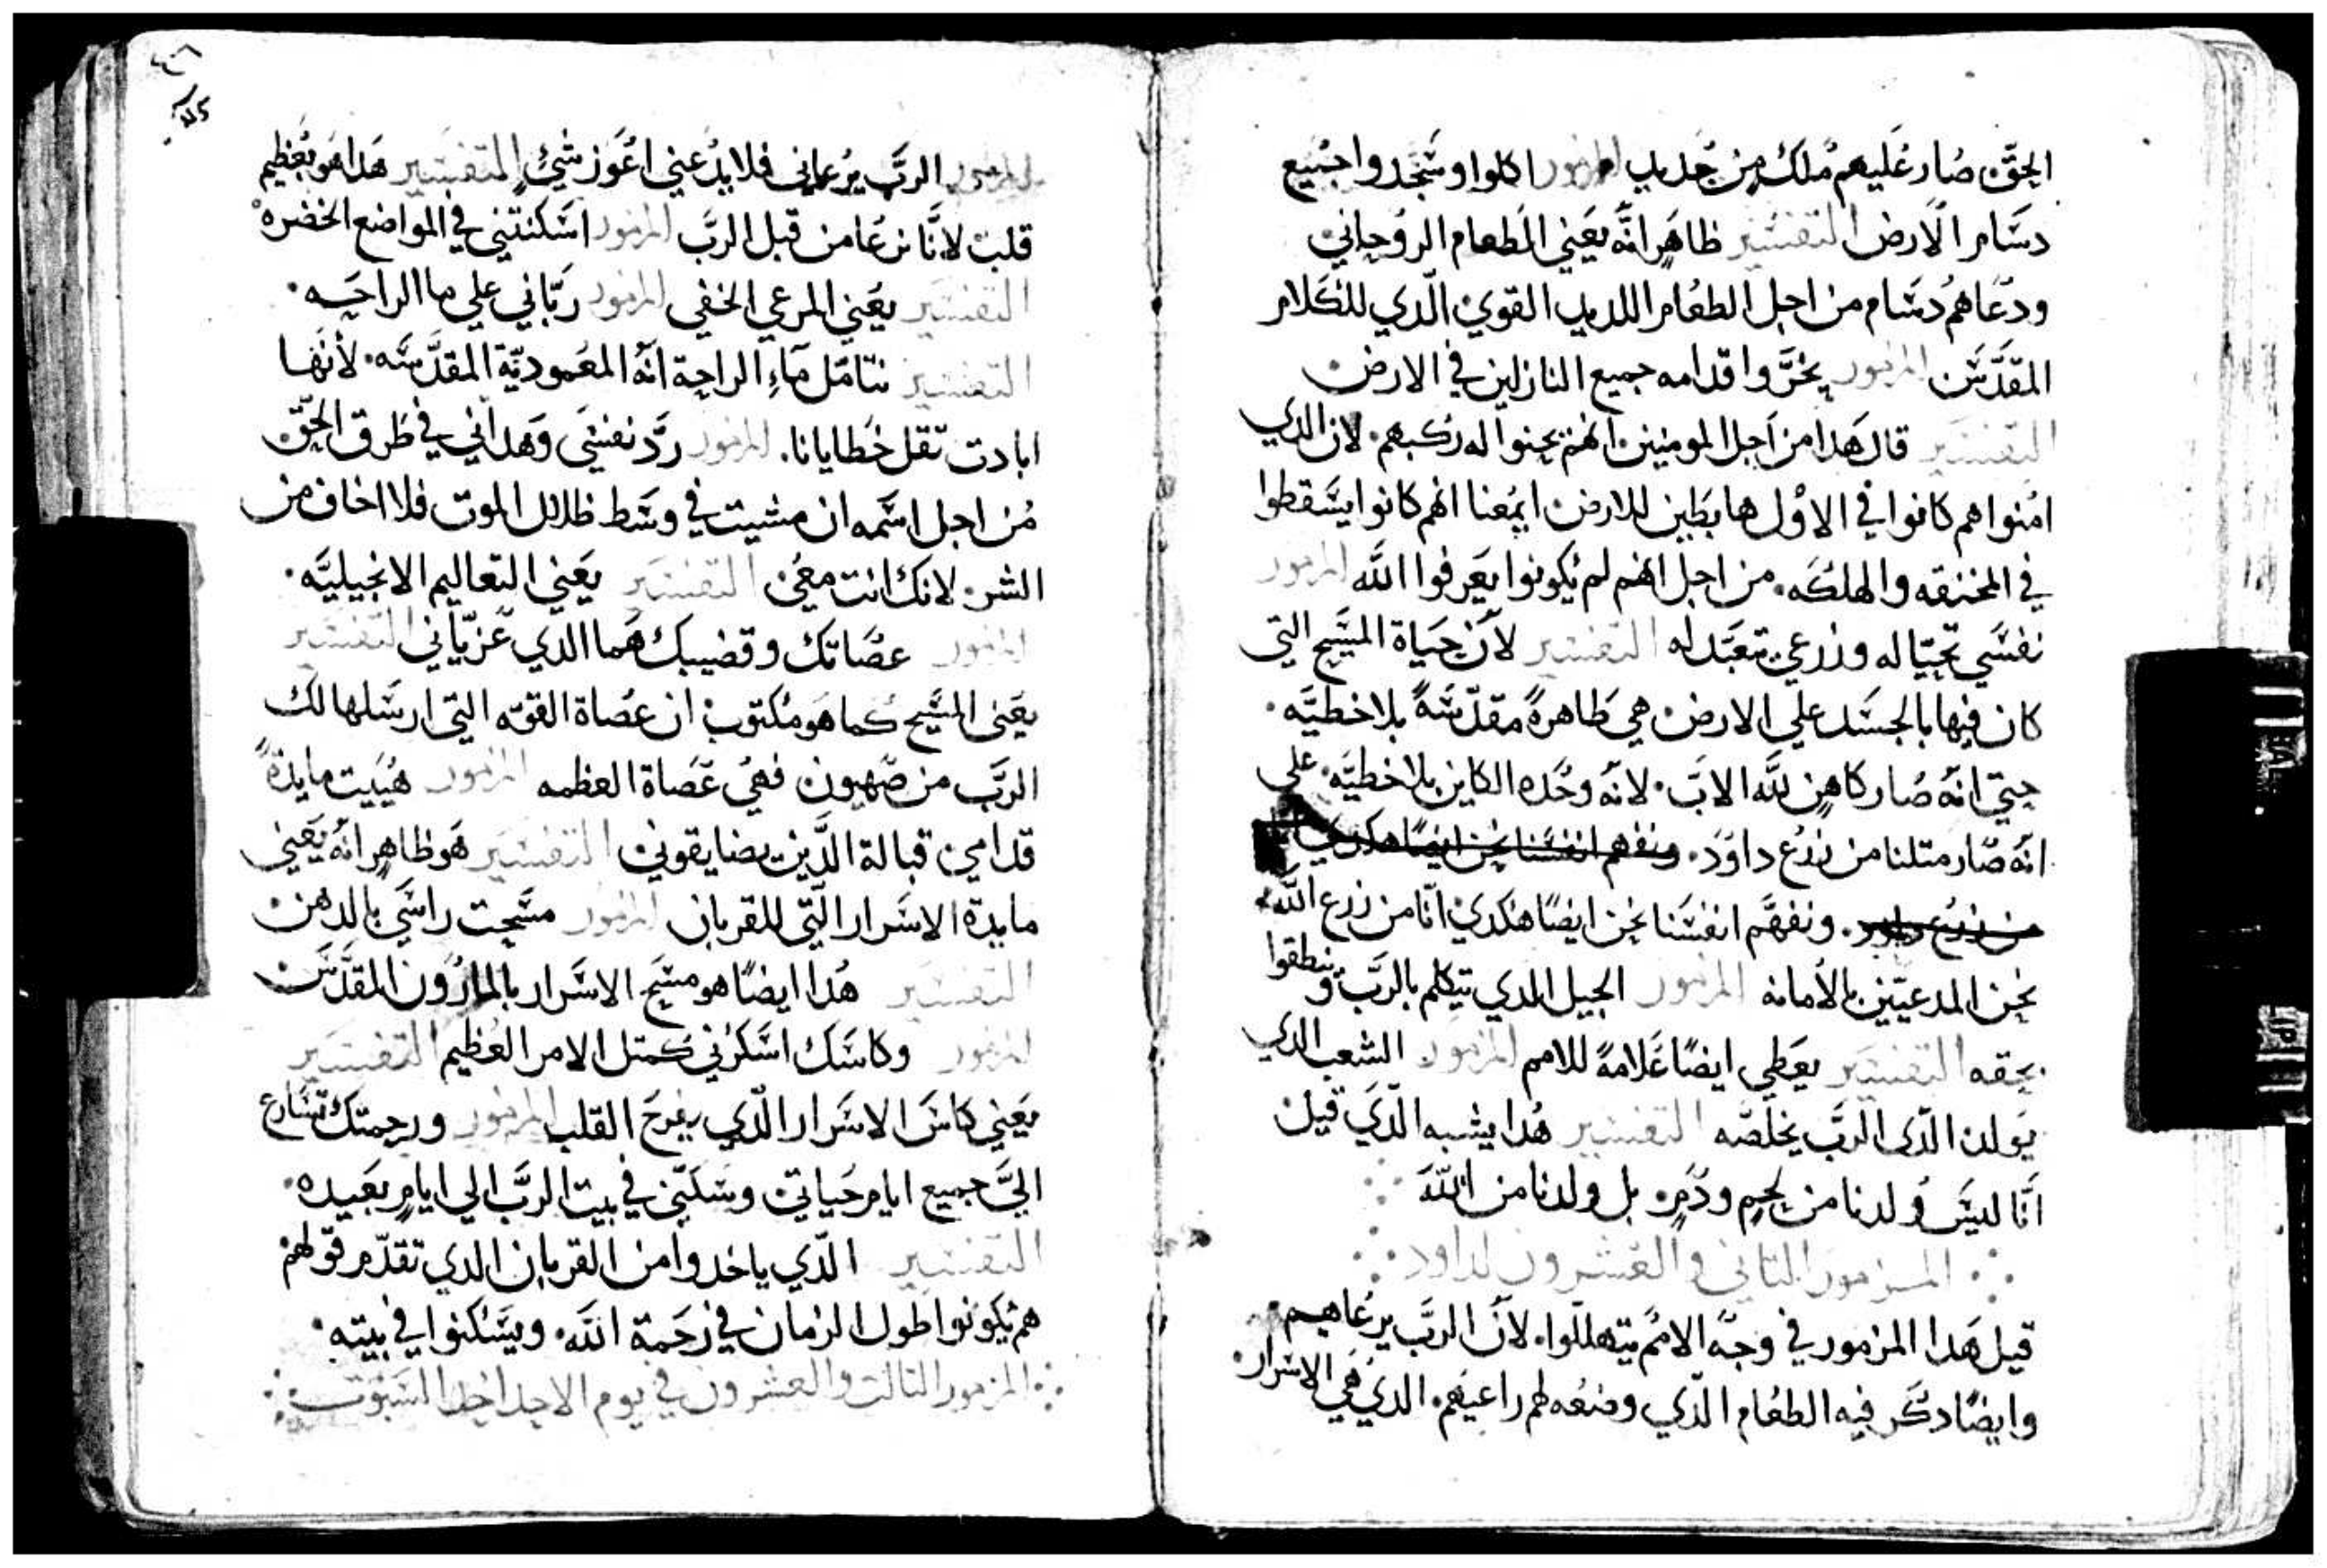 الحق صار عليهم ملك من جديد المزمور اكلوا وسجدوا جميع
دسام الارض التفسير ظاهر انه يعني الطعام الروحاني
ودعاهم دسام من اجل الطعام اللديد القوي الدي للكلام
المقدس المزمور يخروا قدامه جميع النازلين في الارض
التفسير قال هدا من اجل المومنين انهم يحنوا له ركبهم. لان الدي
امنوا هم كانوا في الاول هابطين للارض ايمعنا انهم كانوا يسقطوا
في المخنقه والهلكه. من اجل انهم لم يكونوا يعرفوا الله المزمور
نفسي تحيا له وزرعي تتعبد له التفسير لان حياة المسيح التي
كان فيها بالجسد علي الارض هي طاهرة مقدسة بلا خطيه.
حتي انه صار كاهن لله الاب. لانه وحده الكاين بلا خطيه. علي
انه صار متلنا من زرع داود. ونفهم انفسنا نحن ايضا هكدي
من زرع داود. ونفهم انفسنا نحن ايضا هكدي انا من زرع الله.
نحن المدعيين بالامانه المزمور الجيل الدي يتكلم بالرب وينطقوا
بحقه التفسير يعطي ايضا علامة للامم المزمور الشعب الدي
يولد الدي الرب يخلصه التفسير هدا يشبه الدي قيل
انا ليس ولدنا من لحم ودم بل ولدنا من الله
المزمور التاني والعشرون لداود
قيل هدا المزمور في وجه الامم يتهللوا. لان الرب يرعاهم
وايضا دكر فيه الطعام الدي وضعه لهم راعيهم. الدي هي الاسرار.
المزمور الرب يرعاني فلا يدعني اعوز شئ التفسير هدا هو بعظيم
قلت لانا نرعا من قبل الرب المزمور اسكنتني في المواضع الخضره
التفسير يعني المرعي الخفي المزمور رباني علي ما الراحه.
التفسير نتامل ماء الراحة انه المعمودية المقدسه. لانها
ابادت تقل خطايانا. المزمور رد نفسي وهداني في طرق الحق
من اجل اسمه ان مشيت في وسط ظلال الموت فلا اخاف من
الشر. لانك انت معي التفسير يعني التعاليم الانجيليه.
المزمور عصاتك وقضيبك هما الدي عزياني التفسير
يعني المسيح كما هو مكتوب ان عصاة القوه التي ارسلها لك
الرب من صهيون فهي عصاة العظمه المزمور هييت مايدة
قدامي قبالة الدين يضايقوني التفسير هو ظاهر انه يعني
مايدة الاسرار التي للقربان المزمور مسحت راسي بالدهن
التفسير هدا ايضا هو مسح الاسرار بالمارون المقدس
المزمور وكاسك اسكرني كمتل الامر العظيم التفسير
يعني كاس الاسرار الدي يفرح القلب المزمور ورحمتك تسارع
الي جميع ايام حياتي وسكني في بيت الرب الي ايام بعيده.
التفسير الدي ياخدوا من القربان الدي تقدم قولهم
هم يكونوا طول الزمان في رحمة الله. ويسكنوا في بيته.
المزمور التالت والعشرون في يوم الاحد احد السبوت